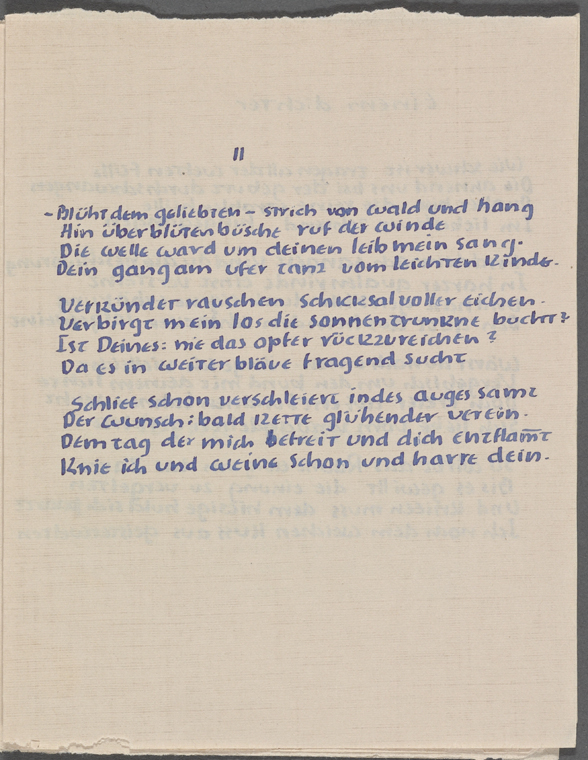 II
- Blüht dem geliebten - strich von wald und hang
Hin über blütenbüsche ruf der winde
Die welle ward um deinen leib mein sang.
Dein gang am ufer tanz vom leichten kinde.
Verkündet rauschen schicksalvoller eichen.
Verbirgt mein los die sonnentrunkne bucht?
Ist Deines: nie das opfer rückzureichen?
Da es in weiter bläue fragend sucht
Schlief schon verschleiert indes auges samt
Der wunsch: bald kette glühender verein.
Dem tag der mich befreit und dich entflamt
Knie ich und weine schon und harre dein.